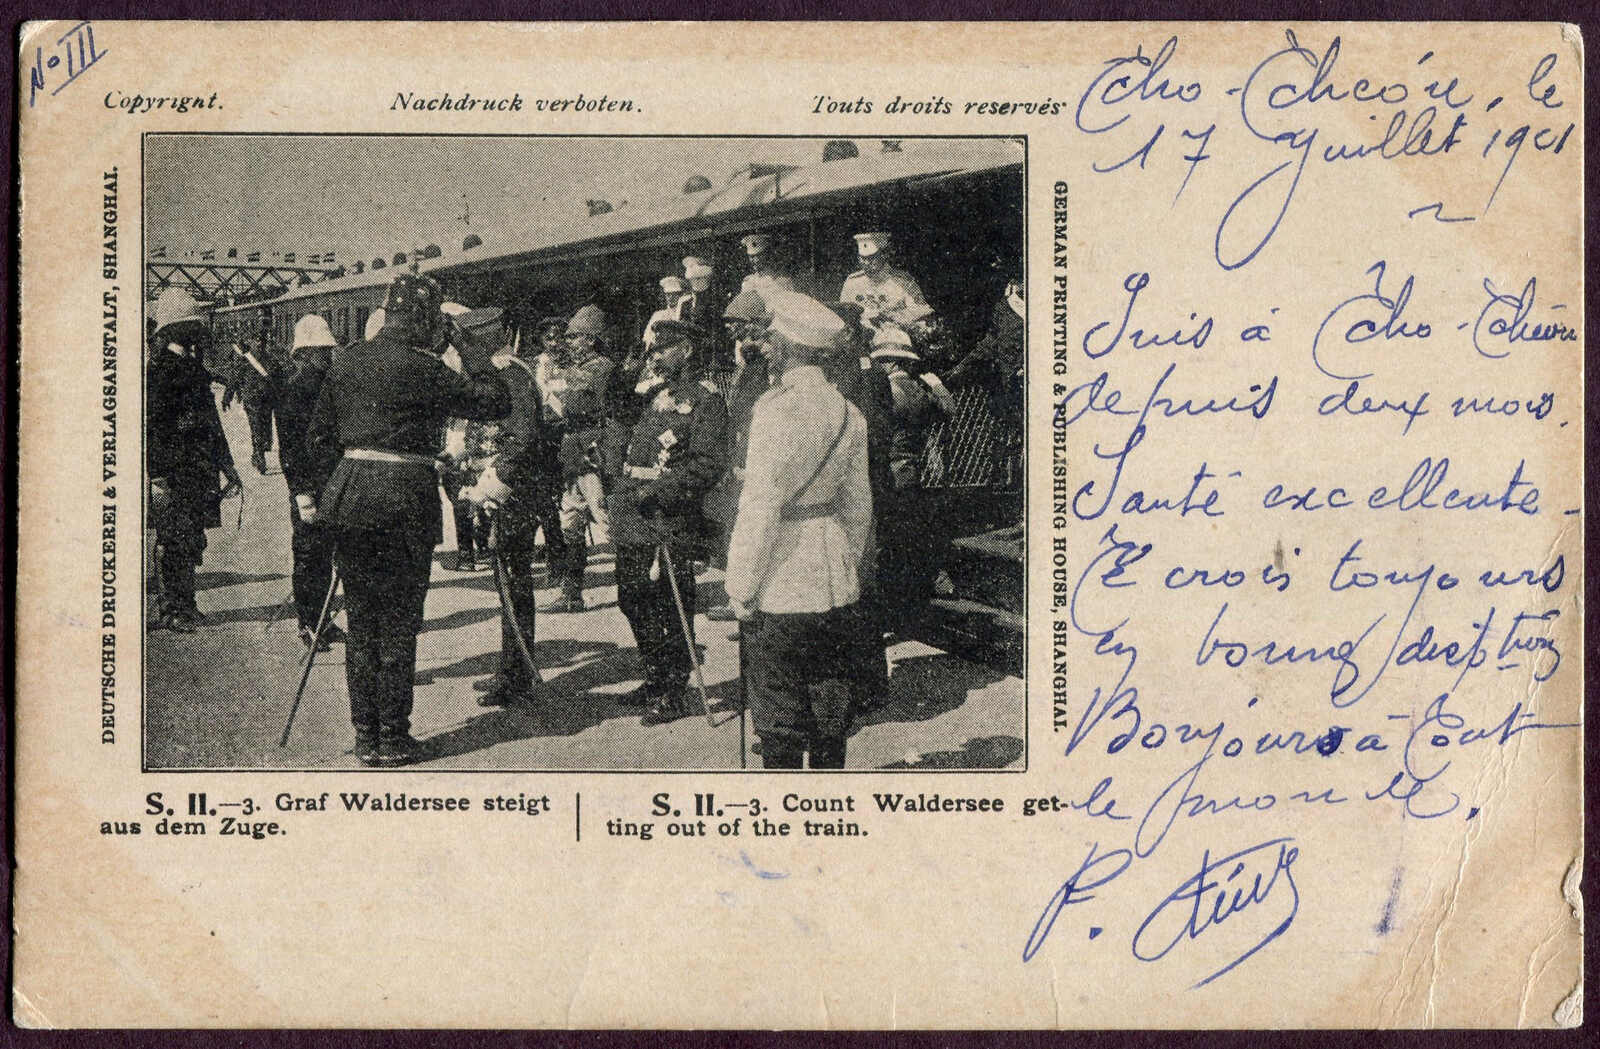 No III
Copyrignt. Nachdruck verboten. Touts droits reservés
DEUTSCHE DRUCKEREI & VERLAGSANSTALT, SHANGHAI.
GERMAN PRINTING & PUBLISHING HOUSE, SHANGHAI.
S. II.—3. Graf Waldersee steigt
aus dem Zuge.
S. II.—3. Count Waldersee get-
ting out of the train.
le
17 Juillet 1901
Suis à Tcho-
depuis deux mois.
Santé excellente -
Te crois toujours
en bonne
Bonjours à tout
le monde.
P.